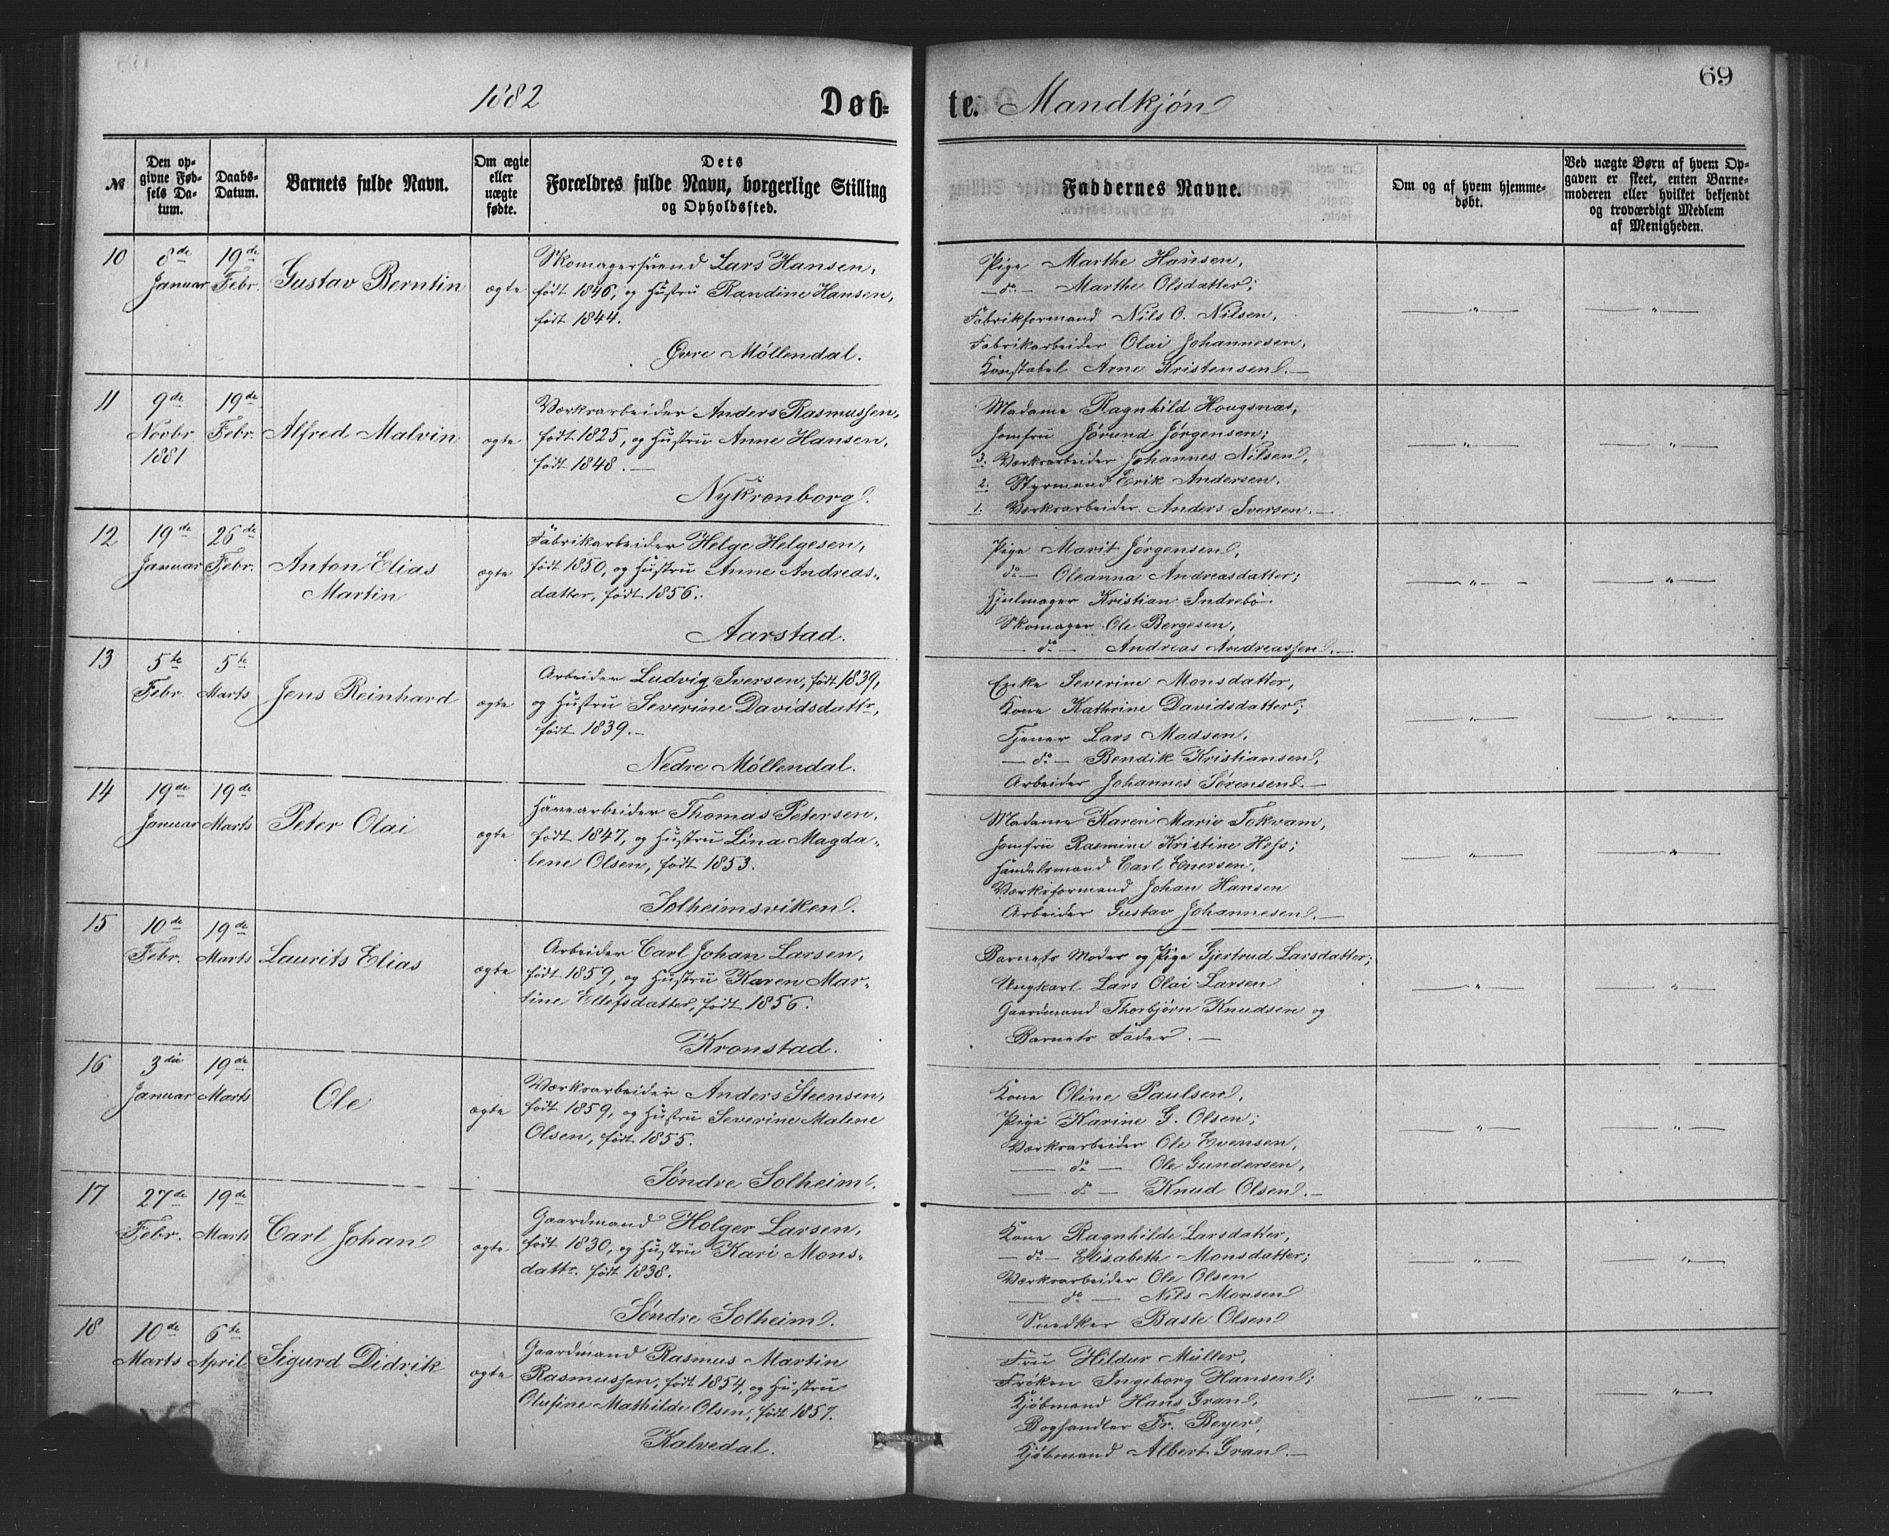 1882
Døb-
te. Mandkjøn
69
№
Den op-
givne Fød-
sels Da-
tum.
Daabs-
Datum.
Barnets fulde Navn.
Om ægte
eller
uægte
fødte.
Dets
Forældres fulde Navn, borgerlige Stilling
og Opholdssted.
Faddernes Navne.
Om og af hvem hjemme-
døbt.
Ved uægte Børn af hvem Op-
gaven er skeet, enten Barne-
moderen eller hvilket bekjendt
og troværdigt Medlem
af Menigheden.
10
8de
Januar
19de
Febr.
Gustav Berntin
ægte
Skomagersvend Lars Hansen,
født 1846, og Hustru Randine Hansen,
født 1844.
Øvre Møllendal.
Pige Marthe Hansen,
— do — Marthe Olsdatter;
Fabrikformand Nils O. Nilsen,
Fabrikarbeider Olai Johannesen,
Konstabel Arne Kristensen. —
— " —
— " —
11
9de
Novbr.
1881
19de
Febr.
Alfred Malvin
ægte
Værksarbeider Anders Rasmussen,
født 1825, og Hustru Anne Hansen,
født 1848. —
Nykronborg.
Madame Ragnhild Hougsnas,
Jomfru Jørund Jørgensen;
3. Værksarbeider Johannes Nilsen,
2. Styrmand Erik Andersen,
1. Værksarbeider Anders Iversen. —
— " —
— " —
12
19de
Januar
26de
Febr.
Anton Elias
Martin
ægte
Fabrikarbeider Helge Helgesen,
født 1850, og Hustru Anne Andreas-
datter, født 1856.
Aarstad.
Pige Marit Jørgensen,
do — Oleanna Andreasdatter;
Hjulmager Kristian Indrebø
Skomager Ole Bergesen,
— do — Andreas Andreassen. —
— " —
— " —
13
5te
Febr.
5te
Marts
Jens Reinhard
ægte
Arbeider Ludvig Iversen, født 1839,
og Hustru Severine Davidsdattr,
født 1839. —
Nedre Møllendal.
Enke Severine Monsdatter,
Kone Kathrine Davidsdatter;
Tjener Lars Madsen,
— do — Bendik Kristiansen,
Arbeider Johannes Sørensen. —
— " —
— " —
14
19de
Januar
19de
Marts
Peter Olai
ægte
Havearbeider Thomas Petersen,
født 1847, og Hustru Lina Magda-
lene Olsen, født 1853.
Solheimsviken.
Madame Karen Marie Tokvam,
Jomfru Rasmine Kristine Hess;
Handelsmand Carl Enersen,
Værksformand Johan Hansen
Arbeider Gustav Johannesen. —
— " —
— " —
15
10de
Febr.
19de
Marts
Laurits Elias
ægte
Arbeider Carl Johan Larsen,
født 1859, og Hustru Karen Mar-
tine Ellefsdatter, født 1856.
Kronstad.
Barnets Moder og Pige Gjertrud Larsdatter;
Ungkarl Lars Olai Larsen
Gaardmand Thorbjørn Knudsen og
Barnets Fader. —
— " —
— " —
16
3die
Januar
19de
Marts
Ole
ægte
Værksarbeider Anders Steensen,
født 1859, og Hustru Severine Malene
Olsen, født 1855.
Søndre Solheim.
Kone Oline Paulsen,
Pige Karine G. Olsen;
Værksarbeider Ole Evensen,
— do — Ole Gundersen,
— do — Knud Olsen. —
— " —
— " —
17
27de
Febr.
19de
Marts
Carl Johan
ægte
Gaardmand Holger Larsen,
født 1830, og Hustru Kari Mons-
dattr. født 1838.
Søndre Solheim.
Kone Ragnhilde Larsdatter,
— do — Elisabeth Monsdatter;
Værksarbeider Ole Olsen
— do — Nils Monsen
Snedker Baste Olsen
— " —
— " —
18
10de
Marts
6te
April
Sigurd Didrik
ægte
Gaardmand Rasmus Martin
Rasmussen, født 1854, og Hustru
Olufine Mathilde Olsen, født 1857.
Kalvedal.
Fru Hildur Müller,
Frøken Ingeborg Hansen;
Kjøbmand Hans Gran,
Boghandler Fr. Beyer,
Kjøbmand Albert Gran. —
— " —
— " —